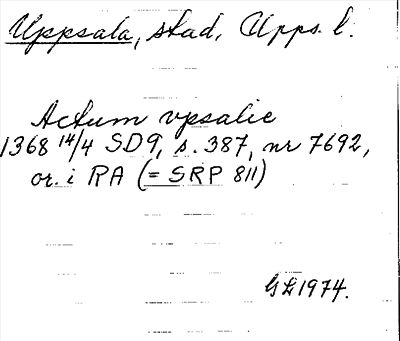 Uppsala, stad, Upps. l.
Actum vpsalie
1368 14/4 SD9, s. 387, nr 7692,
or. i RA (= SRP 811)
GL 1974.